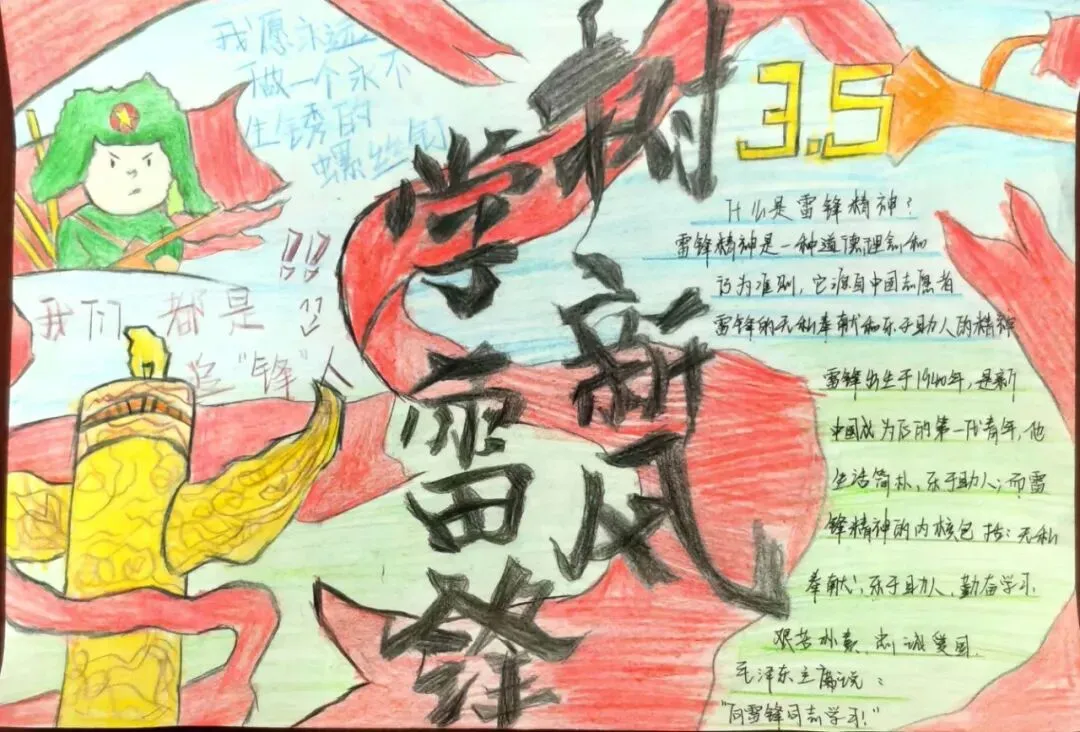 我愿永远
做一个永不
生锈的
螺丝钉
!!
我们都是
追“锋”人
学雷锋
树新风
3.5
什么是雷锋精神？
雷锋精神是一种道德理念和
行为准则，它源自中国志愿者
雷锋的无私奉献和乐于助人的精神
雷锋出生于1940年，是新
中国成为后的第一代青年，他
生活简朴，乐于助人；而雷
锋精神的内核包括：无私
奉献；乐于助人，勤奋学习
艰苦朴素，忠诚爱国。
毛泽东主席说：
“向雷锋同志学习！”